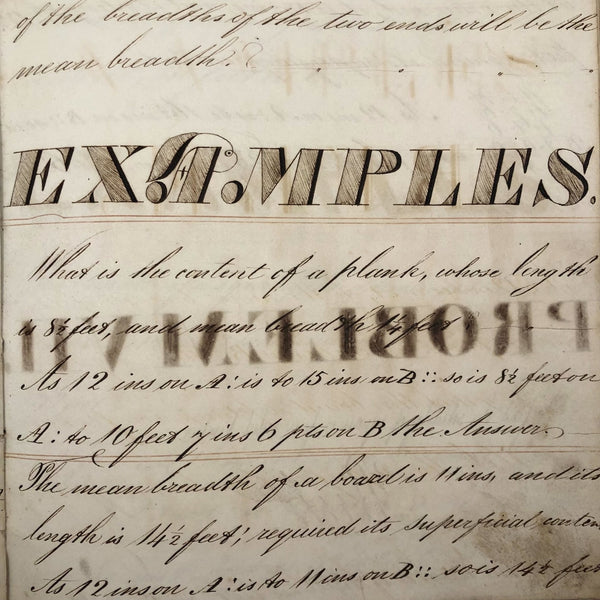 of the breadths of the two ends will be the
mean breadth.
EXAMPLES.
What is the content of a plank, whose length
is 8½ feet, and mean breadth 1¼ feet
As 12 ins on A : is to 15 ins on B :: so is 8½ feet on
A : to 10 feet 7 ins 6 pts on B the Answer.
The mean breadth of a board is 11 ins, and its
length is 14½ feet; required its superficial conten
As 12 ins on A : is to 11 ins on B :: so is 14½ feet
PROBLEM VI